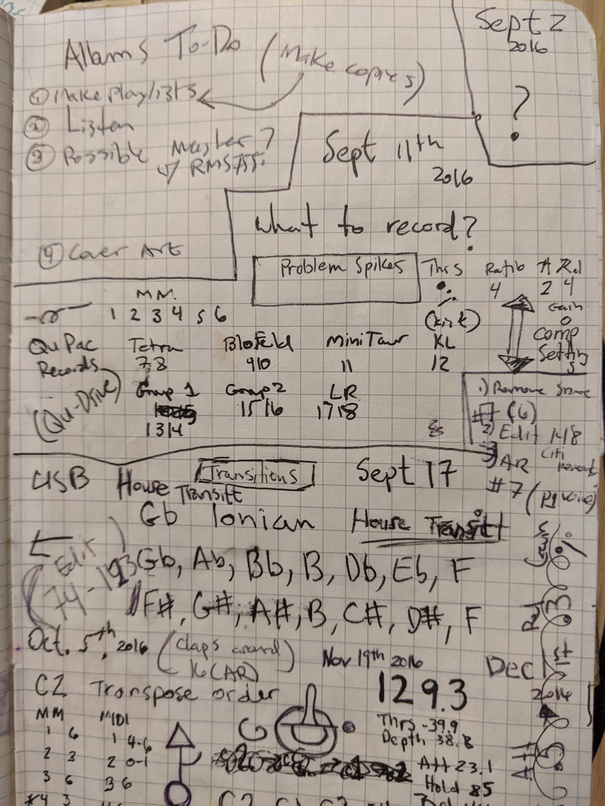 Allams To-Do
(Make copies)
Sept 2
2016
?
① Make Playlists
② Listen
③ Possible Master?
RMS
④ Cover Art
Sept 11th
2016
What to record?
Problem Spikes
Thrs Ratio A Rel
4 2 4
Gain
0
Comp
Settings
(kick)
M.M.
1 2 3 4 5 6
Qu Pac Tetra Blofeld MiniTaur KL
Records 7,8 9 10 11 12
(Qu-Drive) Group 1 Group 2 LR
13 14 15 16 17 18
1) Remove Scene
(6)
2) Edit 148
3) AR
#7
USB House Transitions Sept 17
Transift
Gb Ionian House Transift
← Edit
74-193
Gb, Ab, Bb, B, Db, Eb, F
F#, G#, A#, B, C#, D#, F
Oct. 5th, 2016 (claps around
16 (AR)
Nov 19th 2016
Dec 1st
2016
C2 Transpose order
129.3
Thrs -39.9
Depth 38.8
Att 23.1
Hold 85
MM MIDI
1 6 1 4-6
2 3 2 0-1
3 6 3 6
#4 3